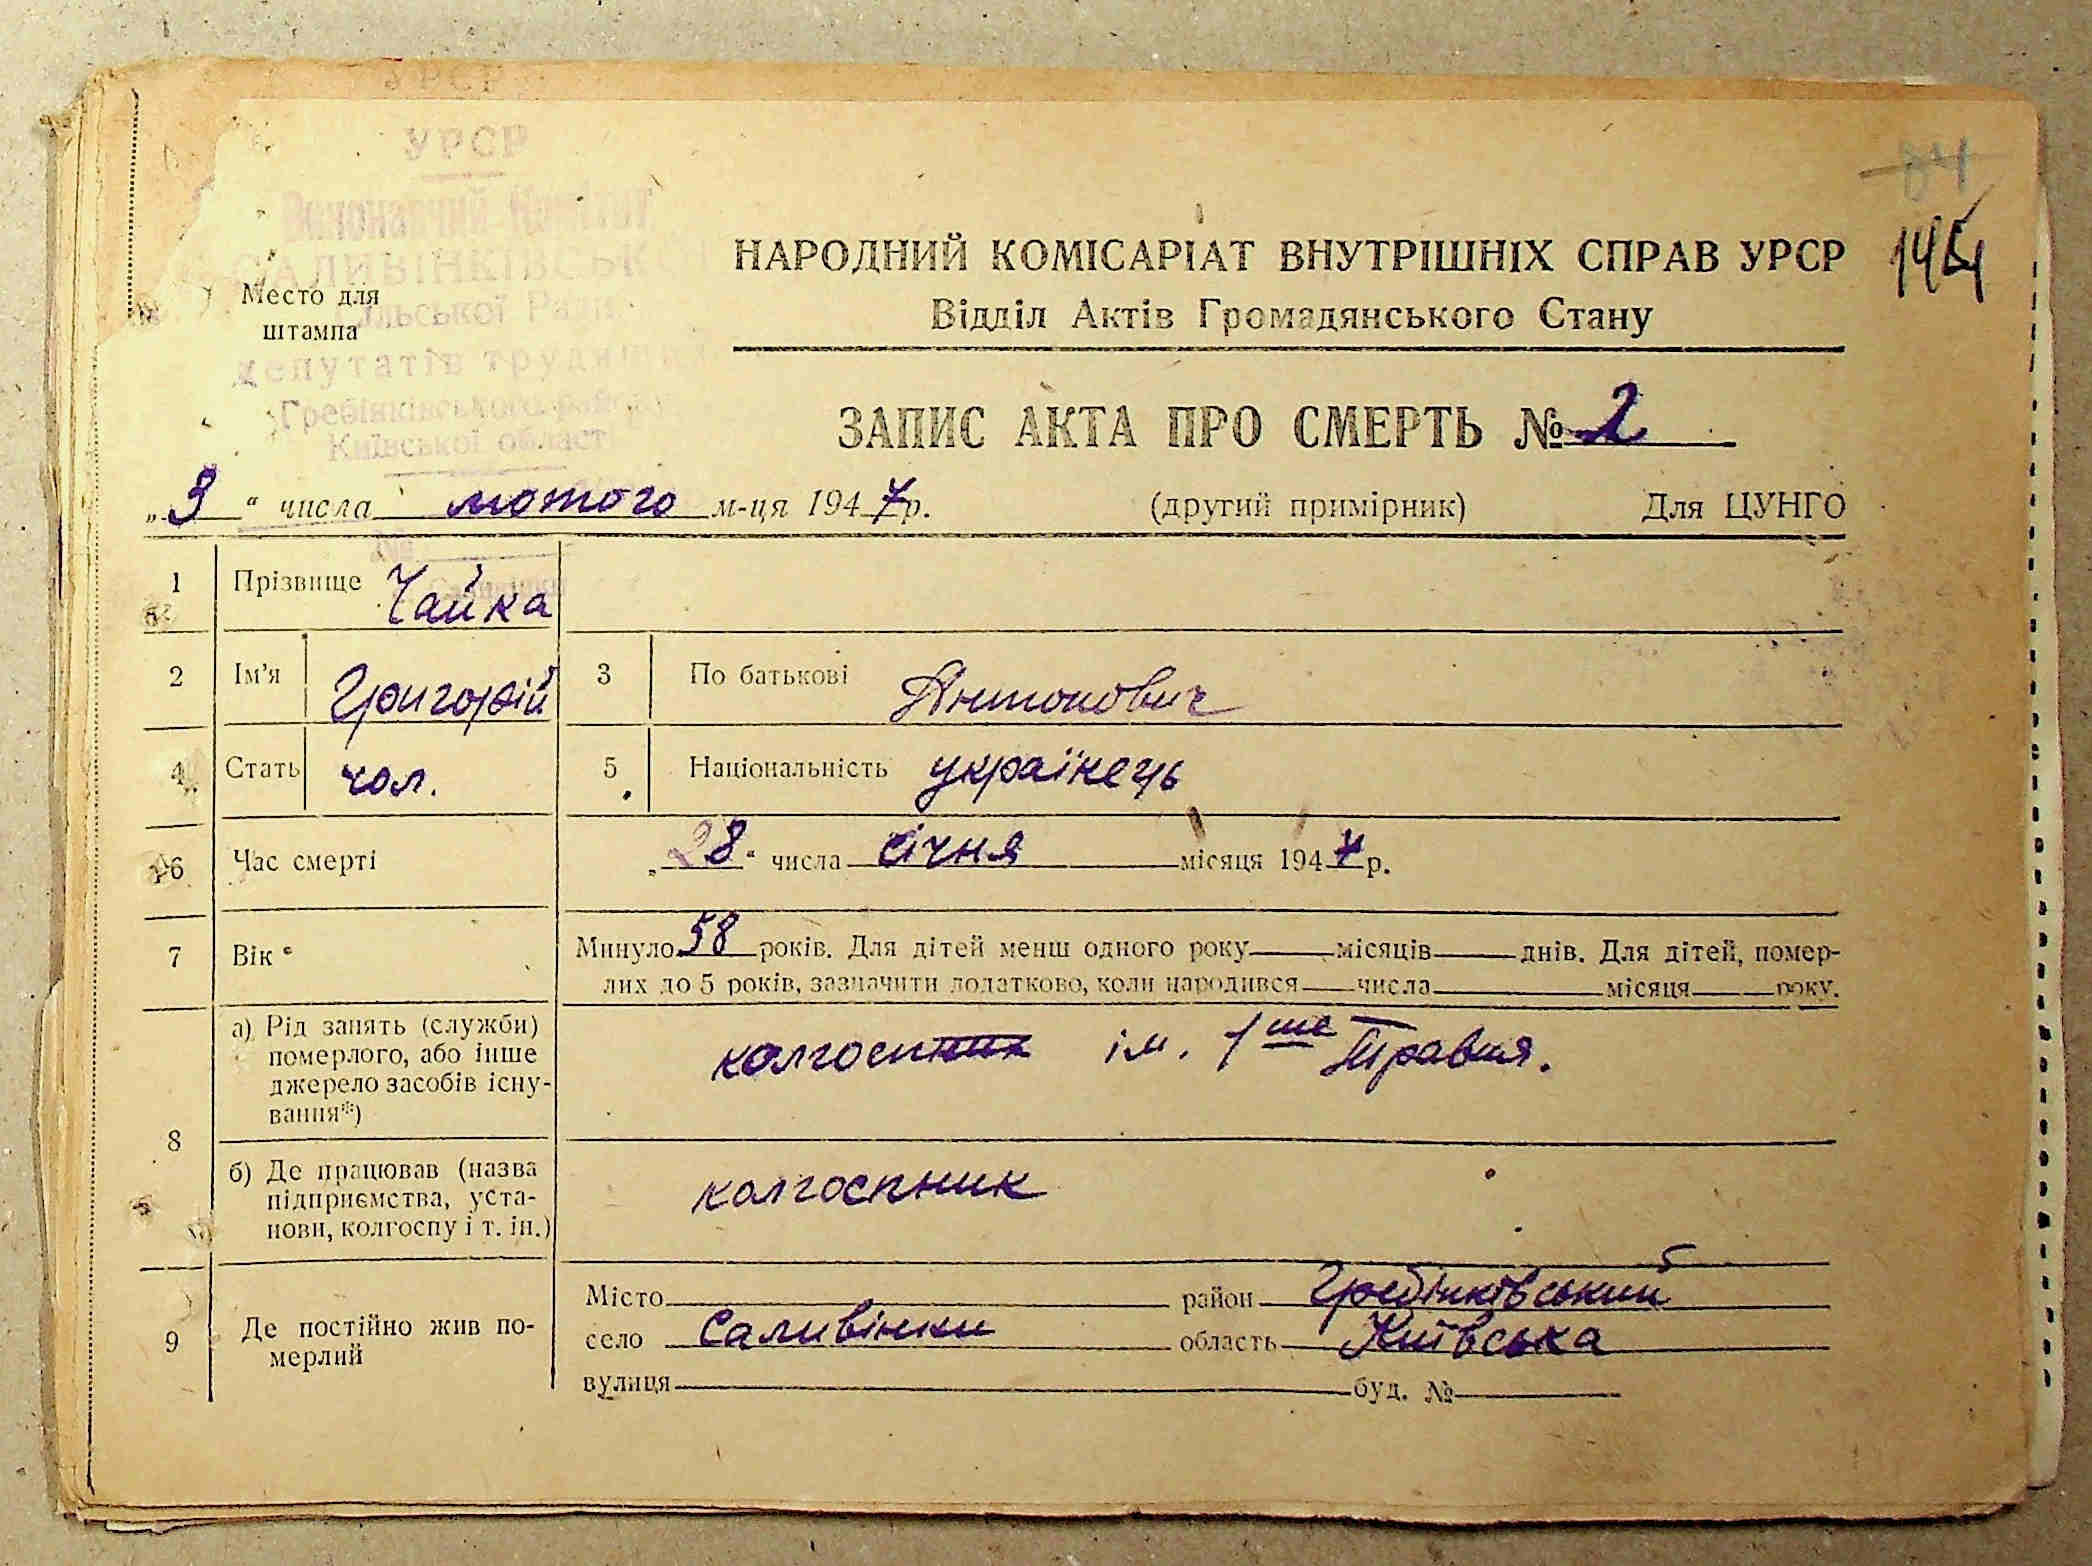 УРСР
УРСР
Виконавчий Комітет
САЛИВІНКІВСЬКОЇ
Сільської Ради
депутатів трудящих
Гребінківського району
Київської області
Место для
штампа
НАРОДНИЙ КОМІСАРІАТ ВНУТРІШНІХ СПРАВ УРСР
Відділ Актів Громадянського Стану
ЗАПИС АКТА ПРО СМЕРТЬ № 2
„3“ числа лютого м-ця 1947 р. (другий примірник) Для ЦУНГО
№
1 Прізвище Чайка
2 Ім’я Григорій 3 По батькові Антонович
4 Стать чол. 5 Національність українець
6 Час смерті „28“ числа січня місяця 1947 р.
7 Вік Минуло 58 років. Для дітей менш одного року місяців днів. Для дітей, помер-
лих до 5 років, зазначити додатково, коли народився числа місяця року.
8 а) Рід занять (служби)
померлого, або інше
джерело засобів існу-
вання*)
колгоспник ім. 1ше Травня.
б) Де працював (назва
підприємства, уста-
нови, колгоспу і т. ін.)
колгоспник
9 Де постійно жив по-
мерлий
Місто район Гребінківський
село Саливінки область Київська
вулиця буд. №